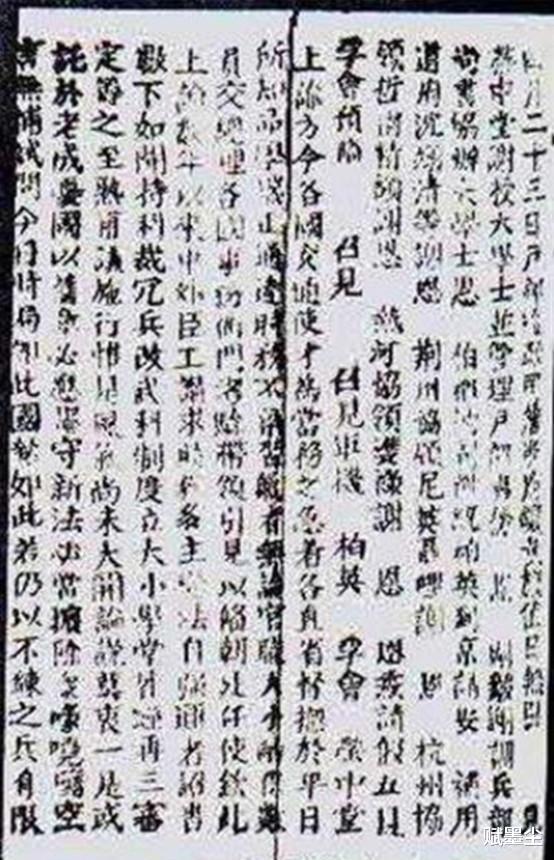 四月二十三日戶部值日無引　見
中堂謝授大學士並管理戶部事務　恩　剛毅謝調兵部
尚書協辦大學士恩　伯到京請安　補用
道用沈清等謝恩　荊州協領尼英謝　恩　杭州協
領哲謝恩　熱河協領雙謝　恩　恩請假五日
孚會預備　召見　召見軍機　柏英　孚會　榮中堂
上諭方今各國交通使才為當務之急著各直省督撫於平日
所知品學端正通達時務不染習氣者無論官職大小酌保數
員交總理各國事務衙門考驗帶領引見以備朝廷任使欽此
上諭數年以來中外臣工講求時務多主變法自強邇者詔書
數下如開特科裁冗兵改武科制度立大小學堂皆經再三審
定籌之至熟甫議施行惟是風氣尚未大開論說莫衷一是或
託於老成憂國以舊章必應墨守新法必當擯除眾喙嘵嘵空
言無補試問今日時局如此國勢如此若仍以不練之兵有限
賦墨尘